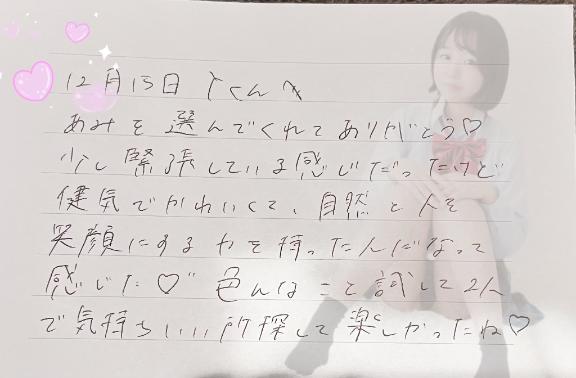 12月15日 Yくんへ
あみを選んでくれてありがとう♡
少し緊張している感じだったけど
健気でかわいくて、自然と人を
笑顔にする力を持った人だなって
感じた♡ 色んなこと試して2人
で気持ちいい所探して楽しかったね♡